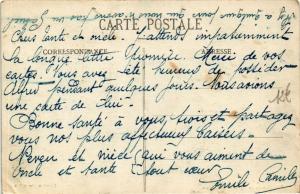 CARTE POSTALE
Chers tante et oncle. J'attends impatiemment
CORRESPONDANCE ADRESSE
la longue lettre promise. Merci de vos
cartes. Vous avez été heureux de posséder
pendant quelques jours. Nous avons
une carte de lui.
Bonne santé à vous, trois et partagez
vous nos plus affectueux baisers.
Neveu et nièce qui vous aiment de
oncle et tante tout cœur
Emile Camille